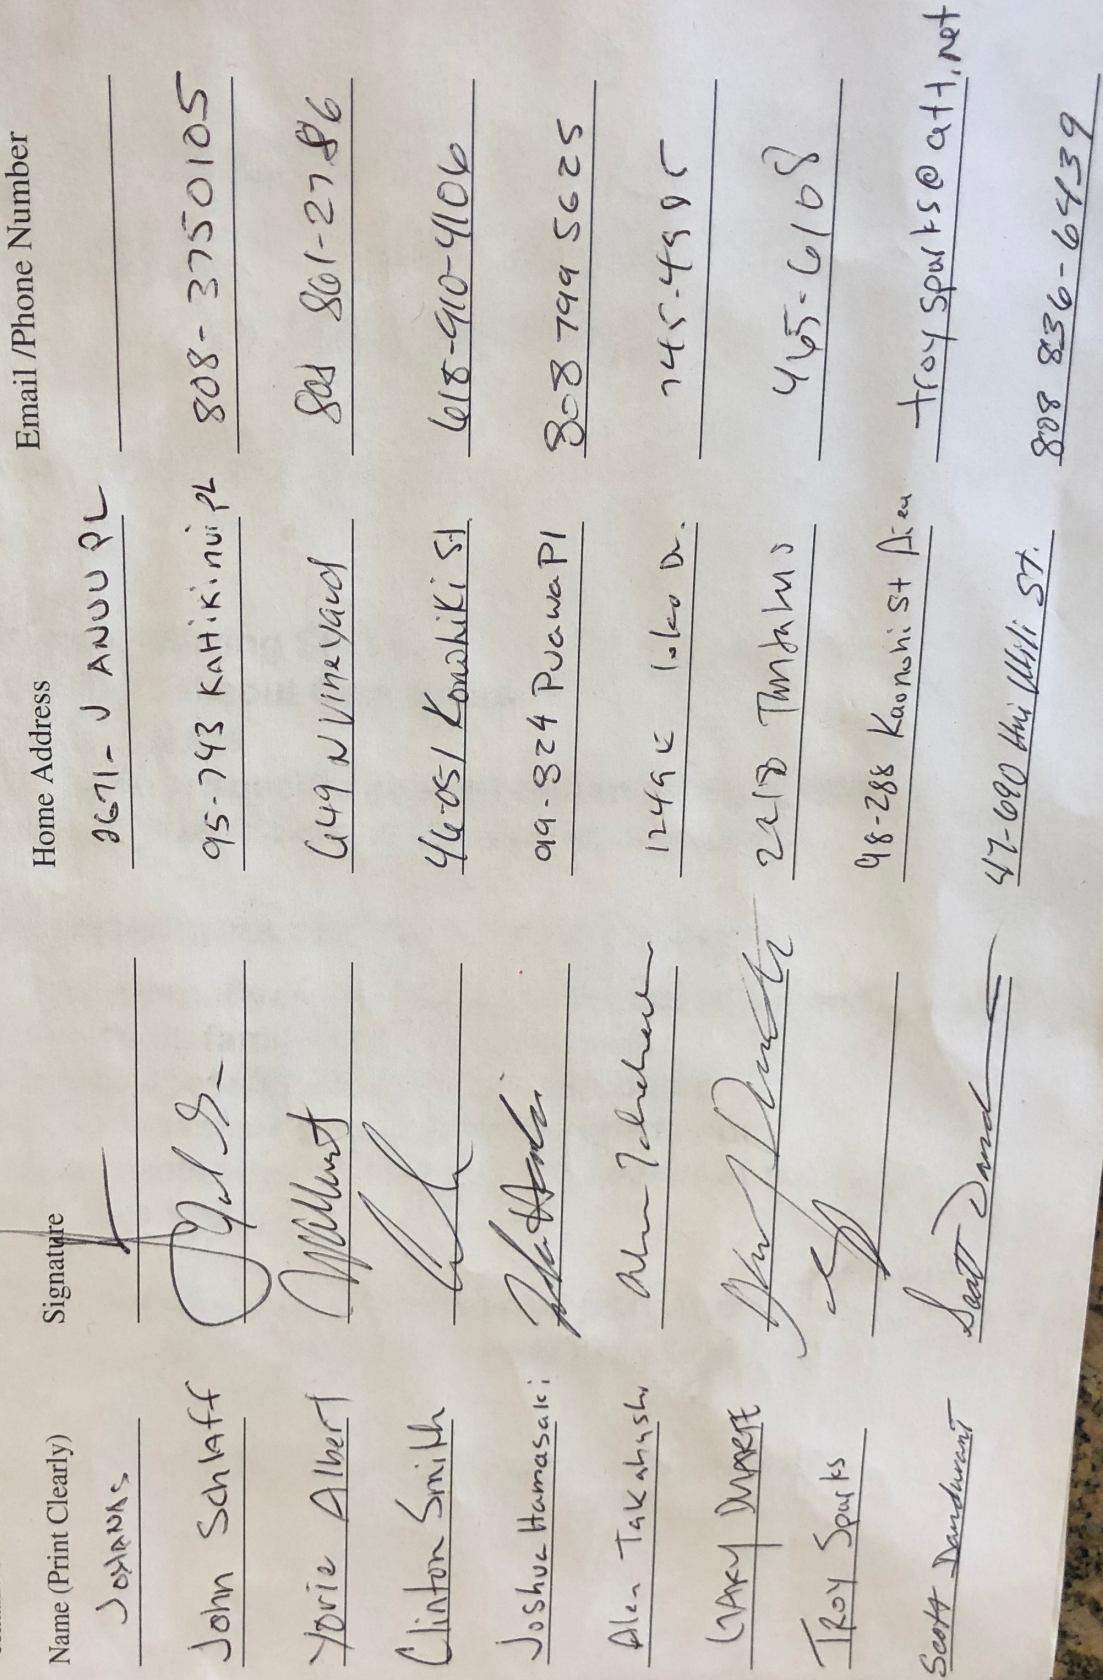 Name (Print Clearly) Signature Home Address Email /Phone Number
JOHANAS 2671-J ANUU PL
John Schlaff 95-743 KAHIKINUI PL 808-3750105
Yorie Albert 649 N Vineyard 808 861-2786
Clinton Smith 46-051 Konohiki St 618-910-4106
Joshua Hamasaki 99-824 Puawa Pl 808 799 5625
Alen Takahashi 1249 E Loko Dr.
GARY DUARTE 2218 465-6108
TROY Sparks 98-288 Kaonohi St Aiea troysparks@att.net
Scott Dandurant Scott 47-690 Hui St. 808 836-6439